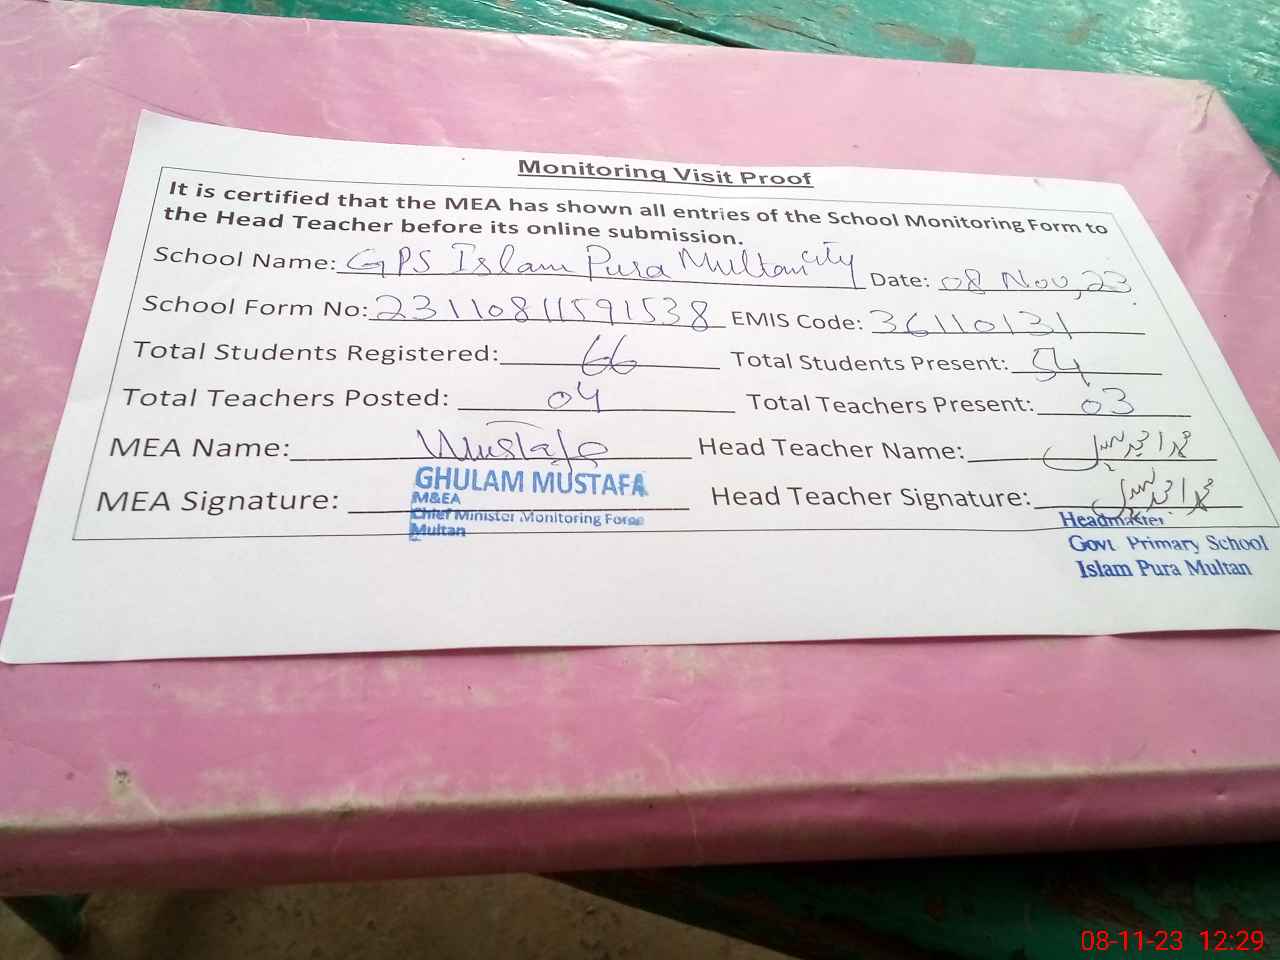 Monitoring Visit Proof
It is certified that the MEA has shown all entries of the School Monitoring Form to
the Head Teacher before its online submission.
School Name: GPS Islam Pura Multan city Date: 08 Nov, 23
School Form No: 23110811591538 EMIS Code: 36110131
Total Students Registered: 66 Total Students Present: 54
Total Teachers Posted: 04 Total Teachers Present: 03
MEA Name: Mustafa Head Teacher Name:
GHULAM MUSTAFA
M&EA
MEA Signature: Head Teacher Signature:
Chief Minister Monitoring Force
Multan
Headmaster
Govt Primary School
Islam Pura Multan
08-11-23 12:29